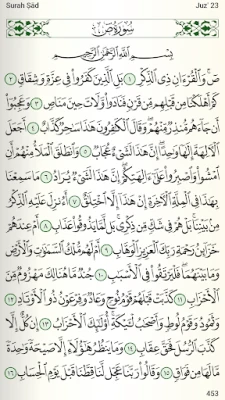 Surah Ṣād
Juz' 23
سُورَةُ صٓ
بِسۡمِ ٱللَّهِ ٱلرَّحۡمَٰنِ ٱلرَّحِيمِ
صٓۚ وَٱلۡقُرۡءَانِ ذِي ٱلذِّكۡرِ ١ بَلِ ٱلَّذِينَ كَفَرُواْ فِي عِزَّةٖ وَشِقَاقٖ ٢
كَمۡ أَهۡلَكۡنَا مِن قَبۡلِهِم مِّن قَرۡنٖ فَنَادَواْ وَّلَاتَ حِينَ مَنَاصٖ ٣ وَعَجِبُوٓاْ
أَن جَآءَهُم مُّنذِرٞ مِّنۡهُمۡۖ وَقَالَ ٱلۡكَٰفِرُونَ هَٰذَا سَٰحِرٞ كَذَّابٌ ٤ أَجَعَلَ
ٱلۡأٓلِهَةَ إِلَٰهٗا وَٰحِدًاۖ إِنَّ هَٰذَا لَشَيۡءٌ عُجَابٞ ٥ وَٱنطَلَقَ ٱلۡمَلَأُ مِنۡهُمۡ أَنِ
ٱمۡشُواْ وَٱصۡبِرُواْ عَلَىٰٓ ءَالِهَتِكُمۡۖ إِنَّ هَٰذَا لَشَيۡءٞ يُرَادُ ٦ مَا سَمِعۡنَا
بِهَٰذَا فِي ٱلۡمِلَّةِ ٱلۡأٓخِرَةِ إِنۡ هَٰذَآ إِلَّا ٱخۡتِلَٰقٌ ٧ أَءُنزِلَ عَلَيۡهِ ٱلذِّكۡرُ
مِنۢ بَيۡنِنَاۚ بَلۡ هُمۡ فِي شَكّٖ مِّن ذِكۡرِيۚ بَل لَّمَّا يَذُوقُواْ عَذَابِ ٨ أَمۡ عِندَهُمۡ
خَزَآئِنُ رَحۡمَةِ رَبِّكَ ٱلۡعَزِيزِ ٱلۡوَهَّابِ ٩ أَمۡ لَهُم مُّلۡكُ ٱلسَّمَٰوَٰتِ وَٱلۡأَرۡضِ
وَمَا بَيۡنَهُمَاۖ فَلۡيَرۡتَقُواْ فِي ٱلۡأَسۡبَٰبِ ١٠ جُندٞ مَّا هُنَالِكَ مَهۡزُومٞ مِّنَ
ٱلۡأَحۡزَابِ ١١ كَذَّبَتۡ قَبۡلَهُمۡ قَوۡمُ نُوحٖ وَعَادٞ وَفِرۡعَوۡنُ ذُو ٱلۡأَوۡتَادِ ١٢
وَثَمُودُ وَقَوۡمُ لُوطٖ وَأَصۡحَٰبُ لۡـَٔيۡكَةِۚ أُوْلَٰٓئِكَ ٱلۡأَحۡزَابُ ١٣ إِن كُلٌّ إِلَّا
كَذَّبَ ٱلرُّسُلَ فَحَقَّ عِقَابِ ١٤ وَمَا يَنظُرُ هَٰٓؤُلَآءِ إِلَّا صَيۡحَةٗ وَٰحِدَةٗ
مَّا لَهَا مِن فَوَاقٖ ١٥ وَقَالُواْ رَبَّنَا عَجِّل لَّنَا قِطَّنَا قَبۡلَ يَوۡمِ ٱلۡحِسَابِ ١٦
453